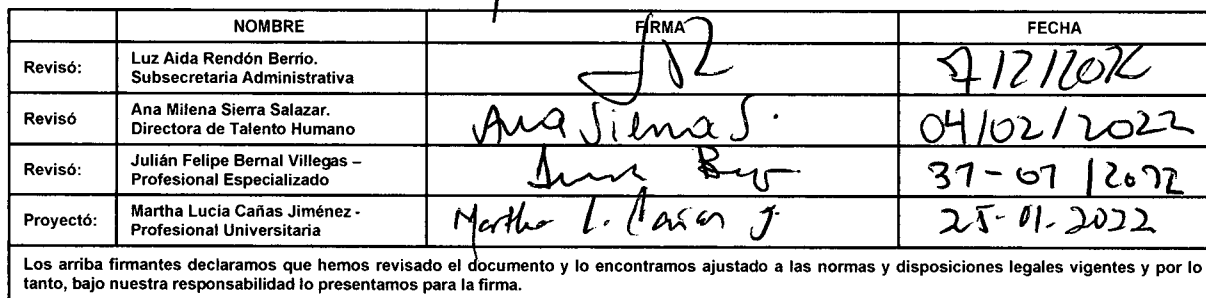 NOMBRE FIRMA FECHA
Revisó: Luz Aida Rendón Berrio.
Subsecretaria Administrativa
7/2/2022
Revisó Ana Milena Sierra Salazar.
Directora de Talento Humano
Ana Sierra S. 04/02/2022
Revisó: Julián Felipe Bernal Villegas –
Profesional Especializado
31-01/2022
Proyectó: Martha Lucía Cañas Jiménez -
Profesional Universitaria
Martha L. Cañas J. 25-01-2022
Los arriba firmantes declaramos que hemos revisado el documento y lo encontramos ajustado a las normas y disposiciones legales vigentes y por lo
tanto, bajo nuestra responsabilidad lo presentamos para la firma.